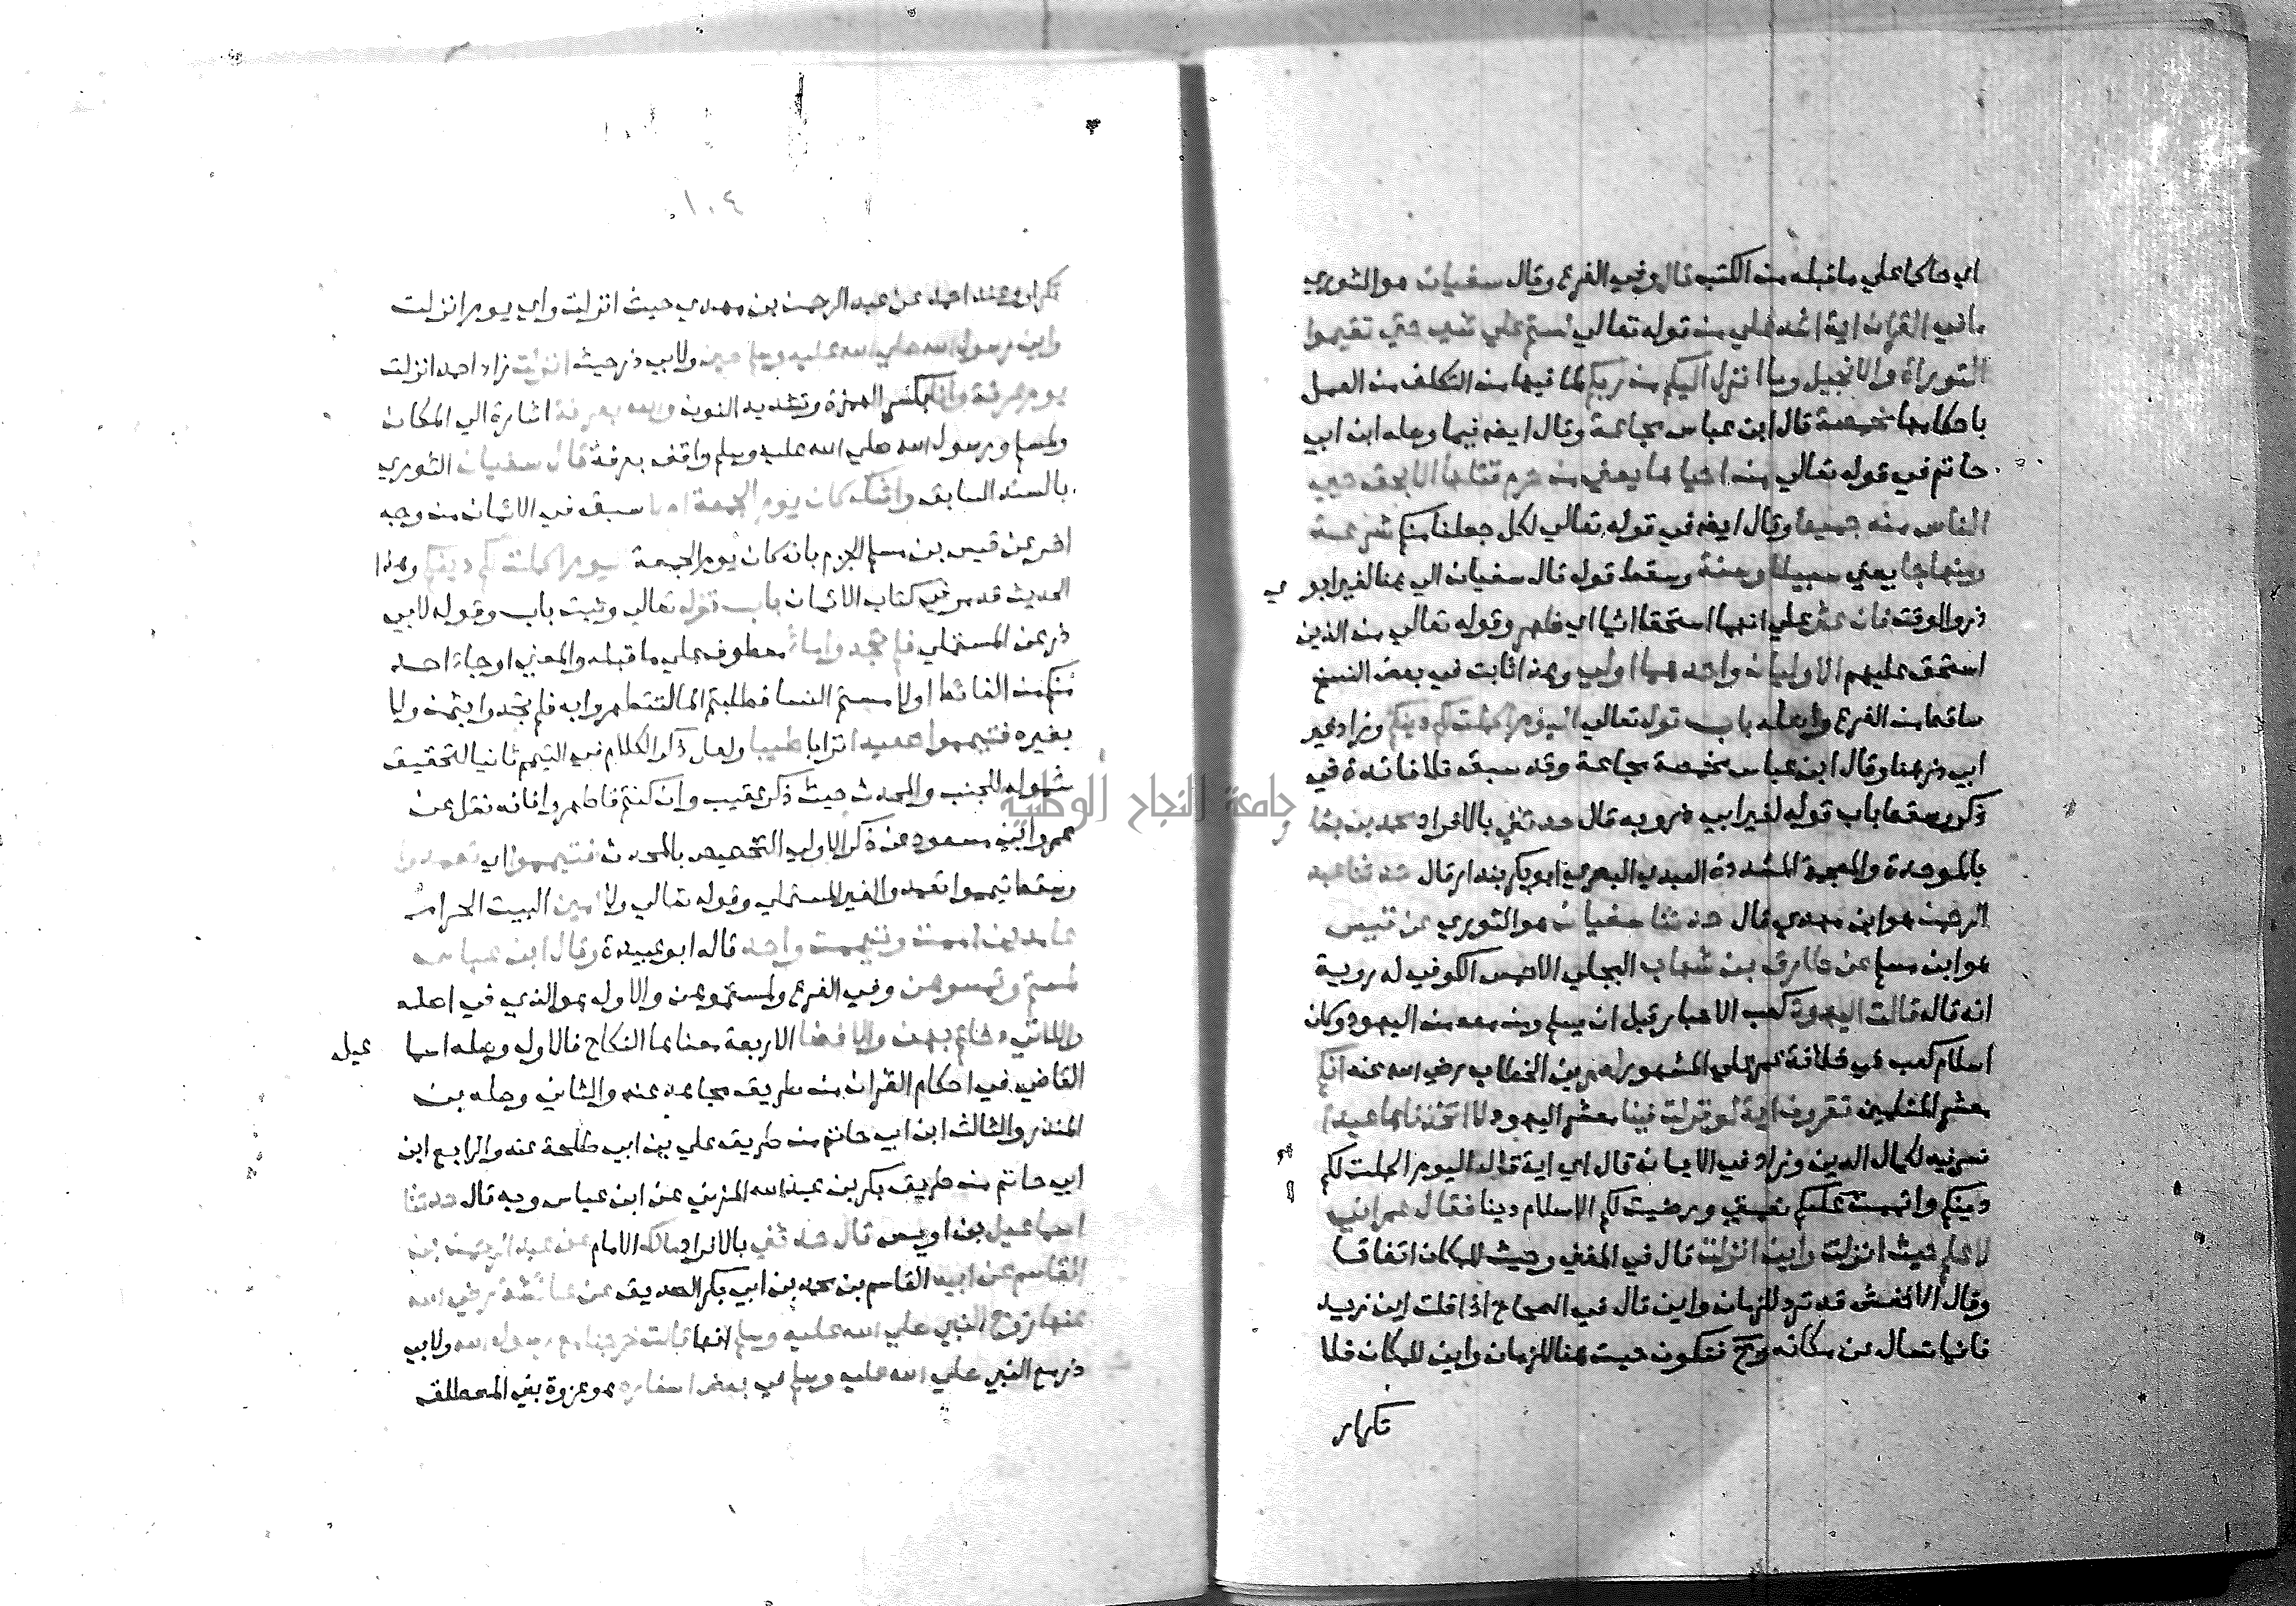 اي حاكما علي ما قبله من الكتب قال وفي الفرع وقال سفيان هو الثوري
ما في القران اية اشد علي من قوله تعالي لستم علي شي حتي تقيموا
التوراة والانجيل وما انزل اليكم من ربكم لما فيها من التكلف من العمل
باحكامها مخمصة قال ابن عباس مجاعة وقال ايضا فيما وصله ابن ابي
حاتم في قوله تعالي من احياها يعني من حرم قتلها الا بحق حيي
الناس منه جميعا وقال ايضا في قوله تعالي لكل جعلنا منكم شرعة
ومنهاجا يعني سبيلا وسنة وسقط قوله قال سفيان الي هنا لغير ابوي
ذر والوقت فان عثر علي انهما استحقا اثما اي ظهر وقوله تعالي من الذين
استحق عليهم الاوليان واحدهما اولي وهذا ثابت في بعض النسخ
ساقط من الفرع واصله باب قوله تعالي اليوم اكملت لكم دينكم وزاد غير
ابي ذر هنا وقال ابن عباس مخمصة مجاعة وقد سبق فلا فائدة في
ذكره وسقط باب قوله لغير ابي ذر وبه قال حدثني بالافراد محمد بن بشار
بالموحدة والمعجمة المشددة العبدي البصري ابو بكر بندار قال حدثنا عبد
الرحمن هو ابن مهدي قال حدثنا سفيان هو الثوري عن قيس
هو ابن مسلم عن طارق بن شهاب البجلي الاحمس الكوفي له روية
انه قال قالت اليهود كعب الاحبار قبل ان يسلم ومن معه من اليهود وكان
اسلام كعب في خلافة عمر علي المشهور لعمر بن الخطاب رضي الله عنه انكم
معشر المسلمين تقرون اية لو نزلت فينا معشر اليهود لاتخذناها عيدا
نسر فيه لكمال الدين وزاد في الايمان قال اي اية قال اليوم اكملت لكم
دينكم واتممت عليكم نعمتي ورضيت لكم الاسلام دينا فقال عمر اني
لاعلم حيث انزلت واين انزلت قال في المغني وحيث للمكان اتفاقا
وقال الاخفش قد ترد للزمان واين قال في الصحاح اذا قلت اين زيد
فانما تسال عن مكانه وح فتكون حيث هنا للزمان واين للمكان فلا
تكرار
١٠٤
تكرار وعند احمد عن عبد الرحمن بن مهدي حيث انزلت واي يوم انزلت
واين رسول الله صلي الله عليه وسلم حين ولابي ذر حيث انزلت زاد احمد انزلت
يوم عرفة وانا بكسر الهمزة وتشديد النون والله بعرفة اشارة الي المكان
ولمسلم ورسول الله صلي الله عليه وسلم واقف بعرفة قال سفيان الثوري
بالسند السابق واشك كان يوم الجمعة ام لا سبق في الايمان من وجه
اخر عن قيس بن مسلم الجزم بانه كان يوم الجمعة اليوم اكملت لكم دينكم وهذا
الحديث قد مر في كتاب الايمان باب قوله تعالي وثبت باب وقوله لابي
ذر عن المستملي فلم تجدوا ماء معطوف علي ما قبله والمعني او جاء احد
منكم من الغائط او لامستم النسا فطلبتم الما لتتطهروا به فلم تجدوا بثمن ولا
بغيره فتيمموا صعيدا ترابا طيبا ولعل ذكر الكلام في التيمم ثانيا لتحقيق
شموله للجنب والمحدث حيث ذكر عقيب وان كنتم فاطهروا فانه نقل عن
عمر وابن مسعود عن ذكر الاول التخصيص بالمحدث فتيمموا اي تعمدوا
وسقط تيمموا تعمدوا لغير المستملي وقوله تعالي ولا امين البيت الحرام
عامدين اممت وتيممت واحد قاله ابو عبيدة وقال ابن عباس
لمستم وتمسوهن وفي الفرع ولمستموهن والاول هو الذي في اصله
واللاتي دخلتم بهن والافضا الاربعة معناها النكاح فالاول وصله اسما عيل
القاضي في احكام القران من طريق مجاهد عنه والثاني وصله بن
المنذر والثالث ابن ابي حاتم من طريق علي بن ابي طلحة عنه والرابع ابن
ابي حاتم من طريق بكر بن عبد الله المزني عن ابن عباس وبه قال حدثنا
اسماعيل بن اويس قال حدثني بالافراد مالك الامام عن عبد الرحمن بن
القاسم عن ابيه القاسم بن محمد بن ابي بكر الصديق عن عائشة رضي الله
عنها زوج النبي صلي الله عليه وسلم انها قالت خرجنا مع رسول الله ولابي
ذر مع النبي صلي الله عليه وسلم في بعض اسفاره هو غزوة بني المصطلق
جامعة النجاح الوطنية